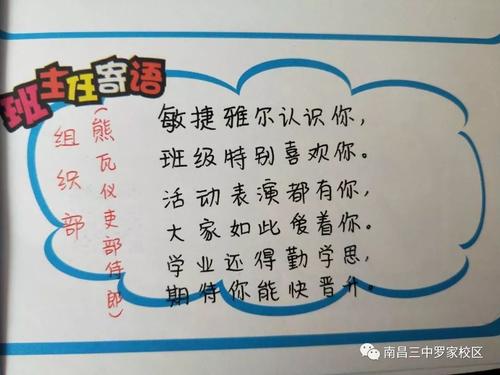 班主任寄语
组织部
(熊瓦仪吏部侍郎)
敏捷雅尔认识你,
班级特别喜欢你。
活动表演都有你,
大家如此爱着你。
学业还得勤学思,
期待你能快晋升。
南昌三中罗家校区